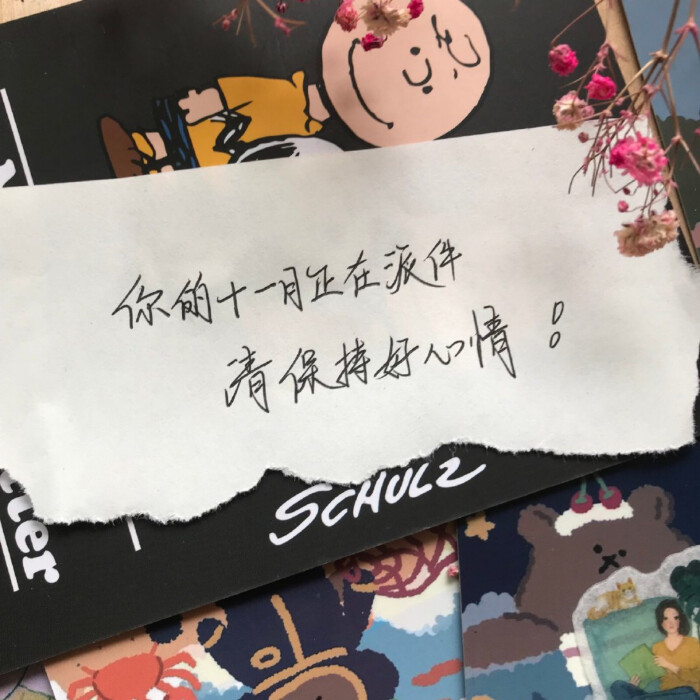 你的十一月正在派件
清保持好心情！
SCHULZ
tter